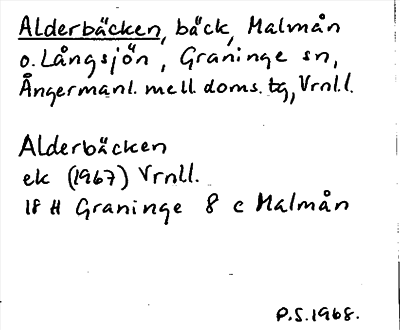 Alderbäcken, bäck, Malmån
o. Långsjön, Graninge sn,
Ångermanl. mell. doms. tg, Vrnl.l.
Alderbäcken
ek (1967) Vrnll.
18 H Graninge 8 c Malmån
P.S. 1968.